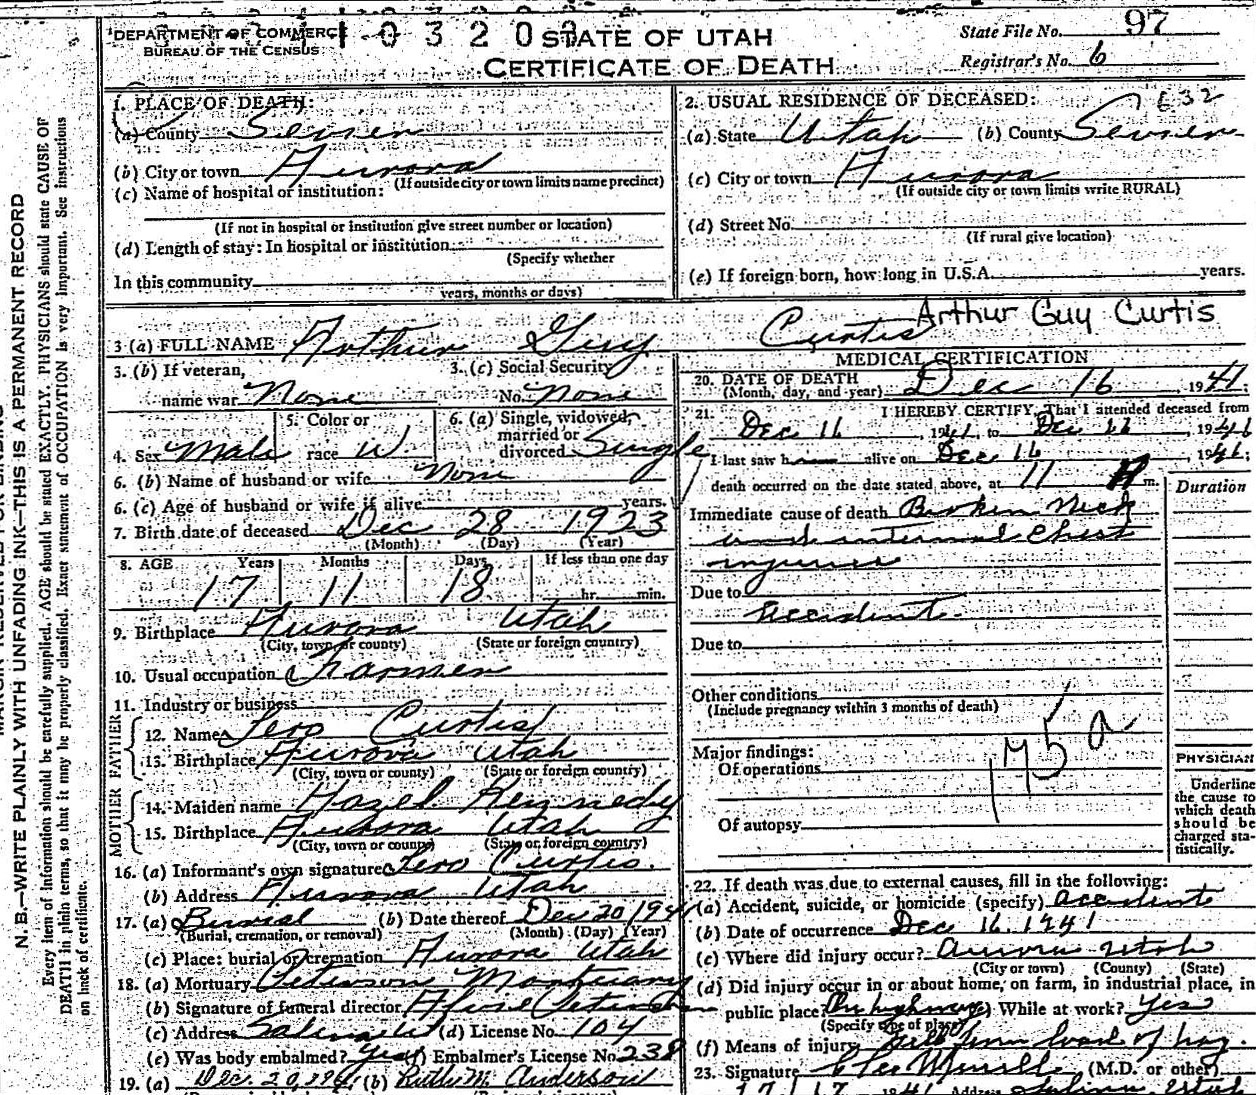 DEPARTMENT OF COMMERCE
BUREAU OF THE CENSUS
STATE OF UTAH
CERTIFICATE OF DEATH
State File No. 97
Registrar's No. 6
N. B.—WRITE PLAINLY WITH UNFADING INK—THIS IS A PERMANENT RECORD
Every item of information should be carefully supplied. AGE should be stated EXACTLY. PHYSICIANS should state CAUSE OF
DEATH in plain terms, so that it may be properly classified. Exact statement of OCCUPATION is very important. See instructions
on back of certificate.
1. PLACE OF DEATH:
(a) County Sevier
(b) City or town Aurora
(If outside city or town limits name precinct)
(c) Name of hospital or institution:
(If not in hospital or institution give street number or location)
(d) Length of stay: In hospital or institution
(Specify whether
In this community
years, months or days)
2. USUAL RESIDENCE OF DECEASED:
(a) State Utah (b) County Sevier
(c) City or town Aurora
(If outside city or town limits write RURAL)
(d) Street No.
(If rural give location)
(e) If foreign born, how long in U.S.A. years.
3 (a) FULL NAME Arthur Guy Curtis
Arthur Guy Curtis
3. (b) If veteran,
name war None
3. (c) Social Security
No. None
4. Sex Male
5. Color or
race W
6. (a) Single, widowed,
married or
divorced Single
6. (b) Name of husband or wife None
6. (c) Age of husband or wife if alive years.
7. Birth date of deceased Dec 28 1923
(Month) (Day) (Year)
8. AGE Years Months Days If less than one day
17 11 18 hr. min.
9. Birthplace Aurora Utah
(City, town or county) (State or foreign country)
10. Usual occupation Farmer
11. Industry or business
FATHER
12. Name Lero Curtis
13. Birthplace Aurora Utah
(City, town or county) (State or foreign country)
MOTHER
14. Maiden name Hazel Kennedy
15. Birthplace Aurora Utah
(City, town or county) (State or foreign country)
16. (a) Informant's own signature Lero Curtis
(b) Address Aurora Utah
17. (a) Burial (b) Date thereof Dec 20 1941
(Burial, cremation, or removal) (Month) (Day) (Year)
(c) Place: burial or cremation Aurora Utah
18. (a) Mortuary Peterson Mortuary
(b) Signature of funeral director
(c) Address Salina (d) License No. 104
(e) Was body embalmed? Yes (f) Embalmer's License No. 238
19. (a) Dec. 20, 1941 (b) Ruth M. Anderson
MEDICAL CERTIFICATION
20. DATE OF DEATH
(Month, day, and year) Dec 16 1941;
21. I HEREBY CERTIFY, That I attended deceased from
Dec 16, 1941, to Dec 16, 1941
I last saw h alive on Dec 16, 1941;
death occurred on the date stated above, at 11 m.
Duration
Immediate cause of death Broken Neck
and internal Chest
injuries
Due to
accident
Due to
Other conditions
(Include pregnancy within 3 months of death)
Major findings:
Of operations
Of autopsy
175 a
PHYSICIAN
Underline
the cause to
which death
should be
charged sta-
tistically.
22. If death was due to external causes, fill in the following:
(a) Accident, suicide, or homicide (specify) accident
(b) Date of occurrence Dec 16. 1941
(c) Where did injury occur? Aurora Utah
(City or town) (County) (State)
(d) Did injury occur in or about home, on farm, in industrial place, in
public place? On highway (e) While at work? Yes
(Specify type of place)
(f) Means of injury Fell from load of hay.
23. Signature (M.D. or other)
Address Salina, Utah